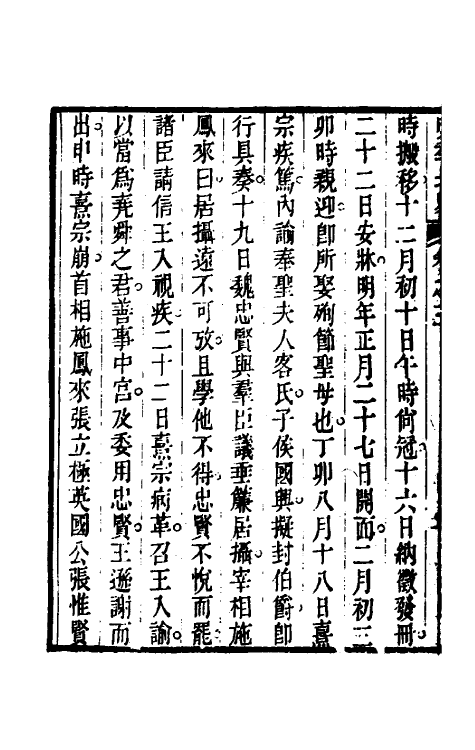 時搬移十二月初十日午時尙冠十六日納徵發冊
二十二日安牀明年正月二十七日開面二月初三
卯時親迎卽所娶殉節聖母也丁卯八月十八日熹
宗疾篤內諭奉聖夫人客氏子侯國興擬封伯爵卽
行具奏十九日魏忠賢與羣臣議垂簾居攝宰相施
鳳來曰居攝遠不可攷且學他不得忠賢不悅而罷
諸臣請信王入視疾二十二日熹宗病革召王入諭
以當爲堯舜之君善事中宮及委用忠賢王遜謝而
出申時熹宗崩首相施鳳來張立極英國公張惟賢